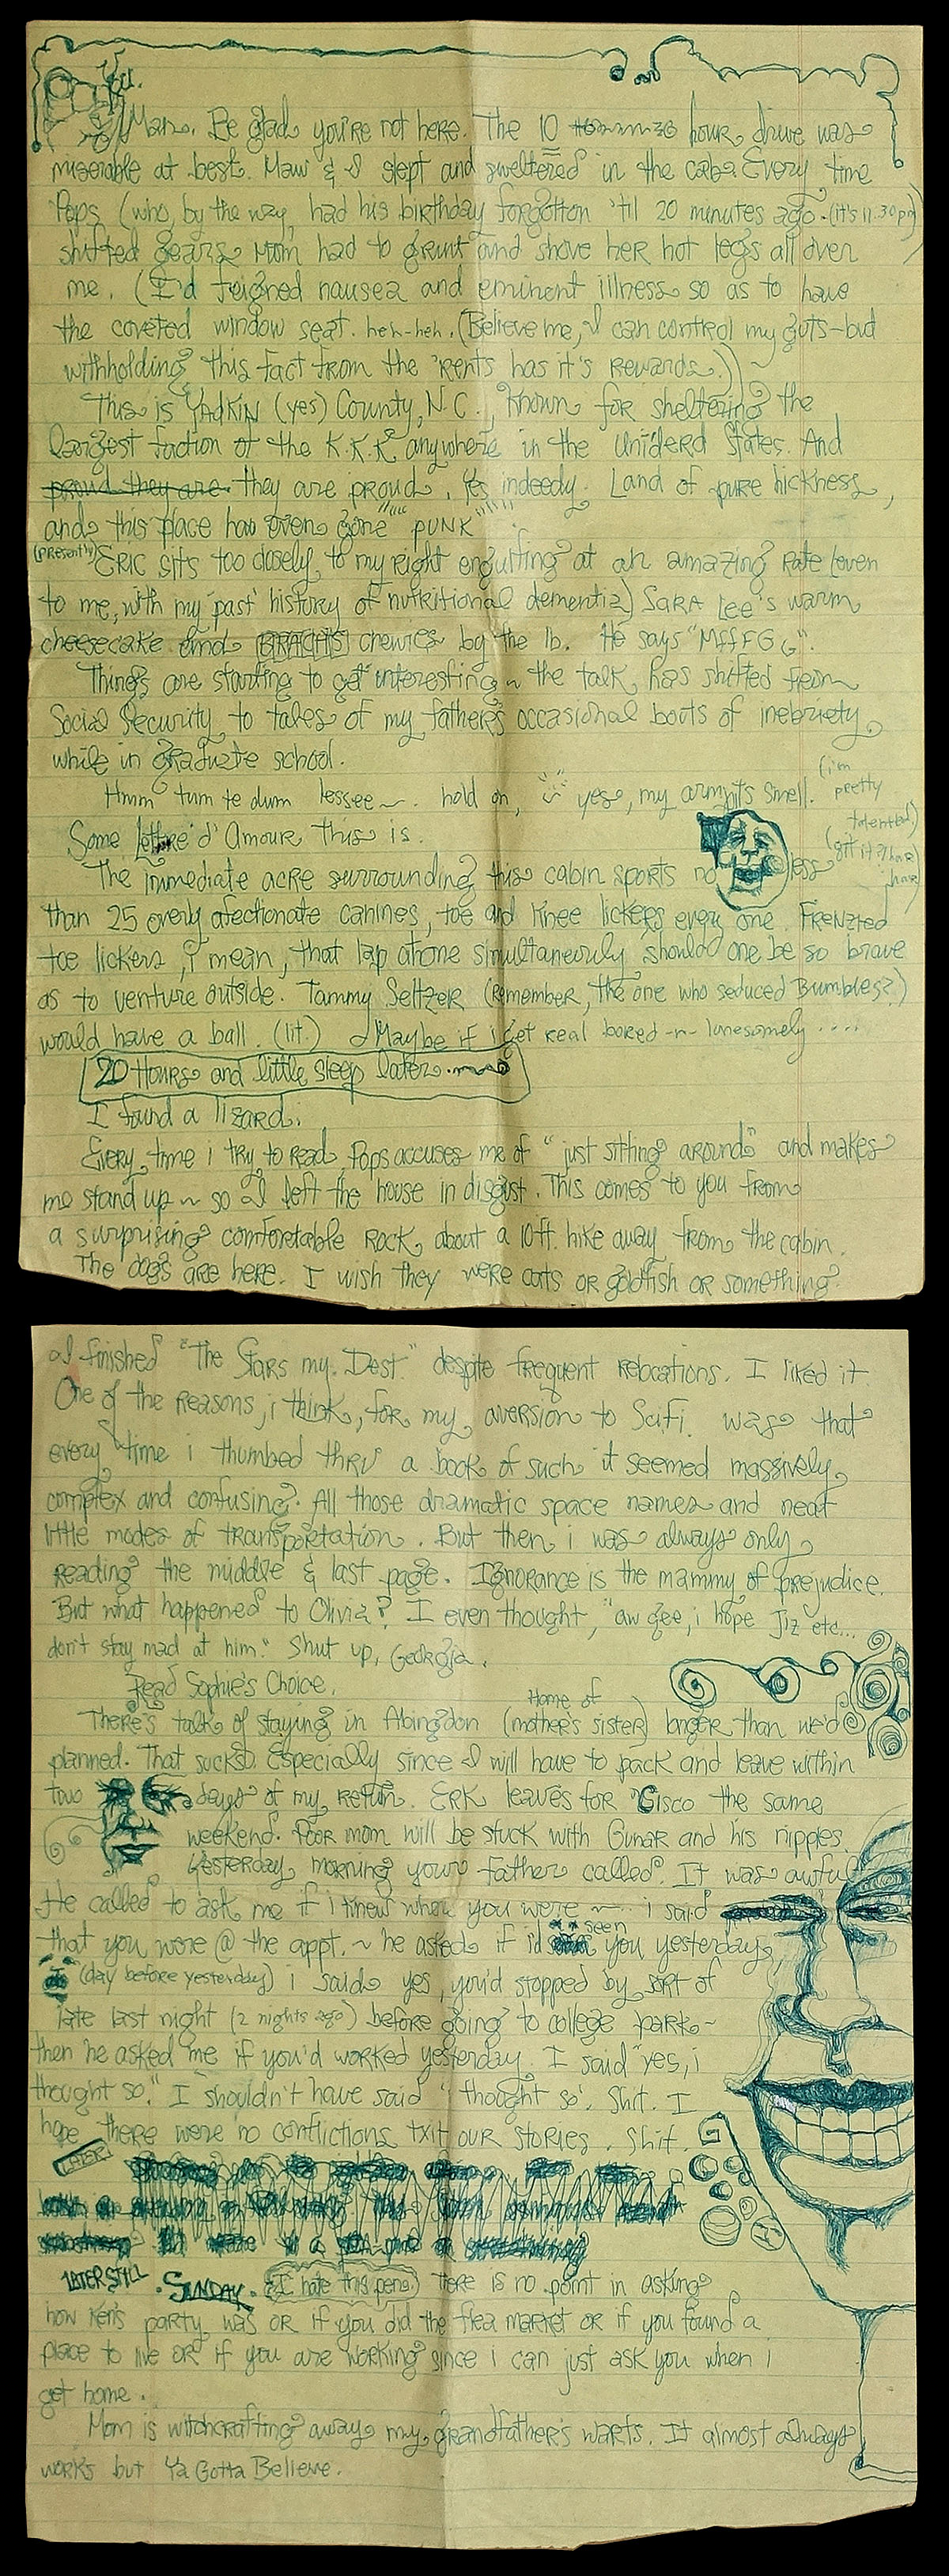 Man. Be glad you're not here. The 10 hour drive was
miserable at best. Maw & I slept and sweltered in the cab. Every time
Pops (who, by the way, had his birthday forgotton 'til 20 minutes ago. (it's 11:30 pm)
shifted gears Mom had to grunt and shove her hot legs all over
me. (I'd feigned nausea and eminent illness so as to have
the coveted window seat. heh-heh. (Believe me, I can control my guts-but
withholding this fact from the 'rents has it's rewards.))
This is YADKIN (yes) County, N.C., known for sheltering the
largest faction of the K.K.K anywhere in the Uniderd States. And
proud they are. they are proud. Yes indeedy. Land of pure hickness,
and this place has even gone "PUNK"
(presently) ERIC sits too closely to my right engulfing at an amazing rate (even
to me, with my 'past' history of nutritional dementia) SARA Lee's warm
cheesecake and BRACHS chewies by the lb. He says "MffFGG".
Things are starting to get interesting ~ the talk has shifted from
Social Security to tales of my father's occasional bouts of inebriety
while in graduate school.
Hmm tum te dum lessee ~. hold on, yes, my armpits smell.
(i'm pretty talented!)
(git it? har har)
Some lettre d' Amoure this is.
The immediate acre surrounding this cabin sports no less
than 25 overly afectionate canines, toe and knee lickers every one. FRENZIED
toe lickers, i mean, that lap atone simultaneously should one be so brave
as to venture outside. Tammy Seltzer (remember, the one who seduced Bumbles?)
would have a ball. (lit.) Maybe if i get real bored -n- lonesomely ....
20 Hours and little sleep later
I found a lizard.
Every time i try to read Pops accuses me of "just sitting around" and makes
me stand up ~ so I left the house in disgust. This comes to you from
a surprising comfortable rock about a 10 ft. hike away from the cabin.
The dogs are here. I wish they were cats or goldfish or something.
I finished "The Stars my Dest." despite frequent relocations. I liked it.
One of the reasons, i think, for my aversion to SciFi. was that
every time i thumbed thru a book of such it seemed massively
complex and confusing. All those dramatic space names and neat
little modes of transportation. But then i was always only
reading the middle & last page. Ignorance is the mammy of prejudice.
But what happened to Olivia? I even thought, "aw gee, i hope Jiz etc...
don't stay mad at him." Shut up, Georgia.
Read Sophie's Choice.
There's talk of staying in Abingdon (Home of mother's sister) longer than we'd
planned. That sucks. Especially since I will have to pack and leave within
two days of my return. ERK leaves for 'Cisco the same
weekend. Poor mom will be stuck with Gunar and his nipples.
Yesterday morning your father called. It was awful.
He called to ask me if i knew where you were ~ i said
that you were @ the appt. ~ he asked if i'd seen you yesterday
(day before yesterday) i said yes, you'd stopped by sort of
late last night (2 nights ago) before going to college park ~
then he asked me if you'd worked yesterday. I said "yes, i
thought so." I shouldn't have said 'i thought so'. Shit. I
hope there were no conflictions txit our stories. Shit.
LATER
LATER STILL. SUNDAY. (I hate this pen.) There is no point in asking
how Ken's party was or if you did the flea market or if you found a
place to live or if you are working since i can just ask you when i
get home.
Mom is witchcrafting away my grandfather's warts. It almost always
works but Ya Gotta Believe.